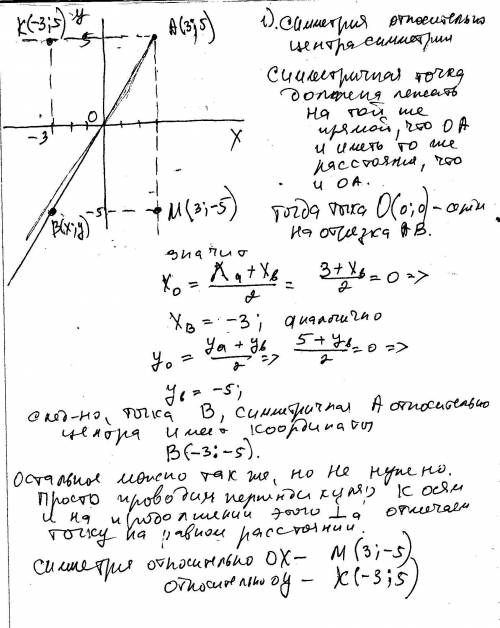 K(-3;5)
y
5
A(3;5)
O
-3
X
B(x;y)
-5
M(3;-5)
1). Симметрия относительно
центра симметрии
Симметричная точка
должна лежать
на той же
прямой, что OA
и иметь то же
расстояния, что
и OA.
Тогда тока O(0;0) -
на отрезка AB.
значит
x₀ = (xₐ + xв)/2 = (3 + xв)/2 = 0 =>
xв = -3; аналогично
y₀ = (yₐ + yв)/2 => (5 + yв)/2 = 0 =>
yв = -5;
след-но, точка B, симметричная A относительно
центра имеет координаты
B(-3;-5).
Остальное можно так же, но не нужно.
Просто проводим перпендикуляр к осям
и на продолжении этого ⊥а отмечаем
точку на равном расстоянии.
Симметрия относительно OX - M(3;-5)
относительно OY - K(-3;5)